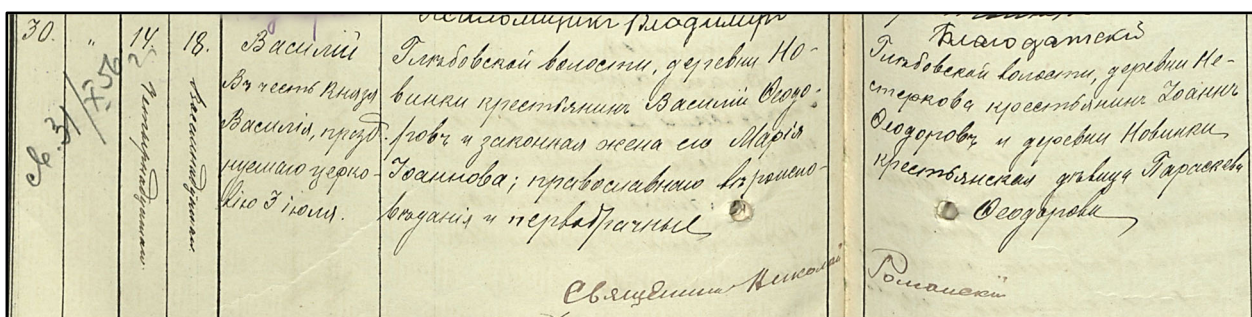 Псаломщикъ Владимиръ
Благодатскій
30.
"
14.
Четырнадцатаго
18.
Восемнадцатаго
св. 31/X 56
Василій
Въ честь Князя
Василія, празд-
нуемаго церко-
вію 3 іюля.
Глѣбовской волости, деревни Но-
винки крестьянинъ Василій Ѳеодо-
ровъ и законная жена его Марія
Іоаннова; православнаго вѣроиспо-
вѣданія и первобрачные
Священникъ Николай
Глѣбовской волости, деревни Не-
стеркова крестьянинъ Іоаннъ
Ѳеодоровъ и деревни Новинки
крестьянская дѣвица Параскева
Ѳеодорова
Романскій